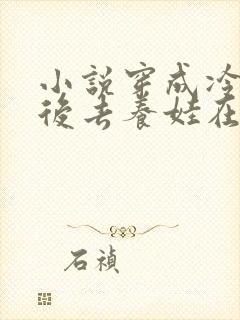 小說穿成冷
後去養娃在
石禎